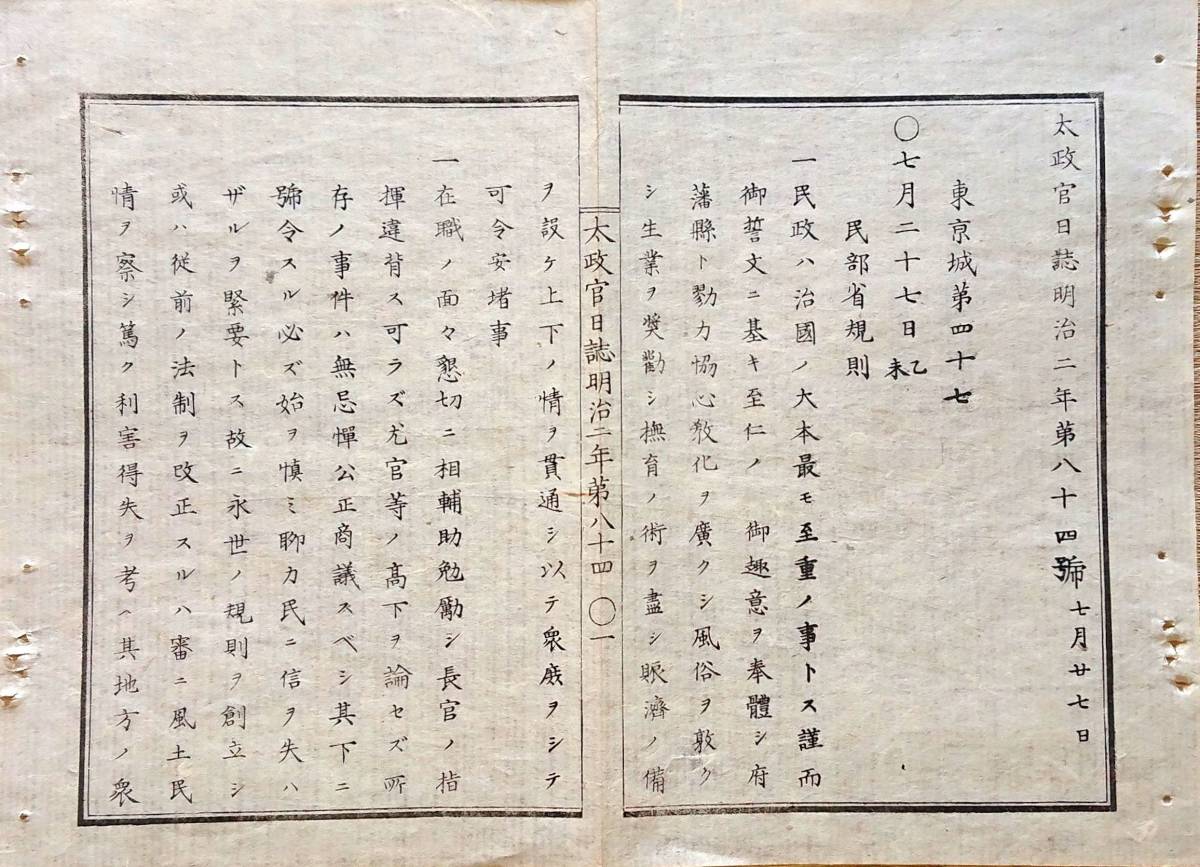 太政官日誌明治二年第八十四號 七月廿七日
東京城第四十七
〇七月二十七日乙未
民部省規則
一民政ハ治國ノ大本最モ至重ノ事トス謹而
御誓文ニ基キ至仁ノ 御趣意ヲ奉體シ府
藩縣ト勠力協心敎化ヲ廣クシ風俗ヲ敦ク
シ生業ヲ奬勸シ撫育ノ術ヲ盡シ賑濟ノ備
太政官日誌明治二年第八十四 〇一
ヲ設ケ上下ノ情ヲ貫通シ以テ衆庻ヲシテ
可令安堵事
一在職ノ面々懇切ニ相輔助勉勵シ長官ノ指
揮違背ス可ラズ尤官等ノ高下ヲ論セズ所
存ノ事件ハ無忌憚公正商議スベシ其下ニ
號令スル必ズ始ヲ慎ミ聊カ民ニ信ヲ失ハ
ザルヲ緊要トス故ニ永世ノ規則ヲ創立シ
或ハ從前ノ法制ヲ改正スルハ審ニ風土民
情ヲ察シ篤ク利害得失ヲ考ヘ其地方ノ衆